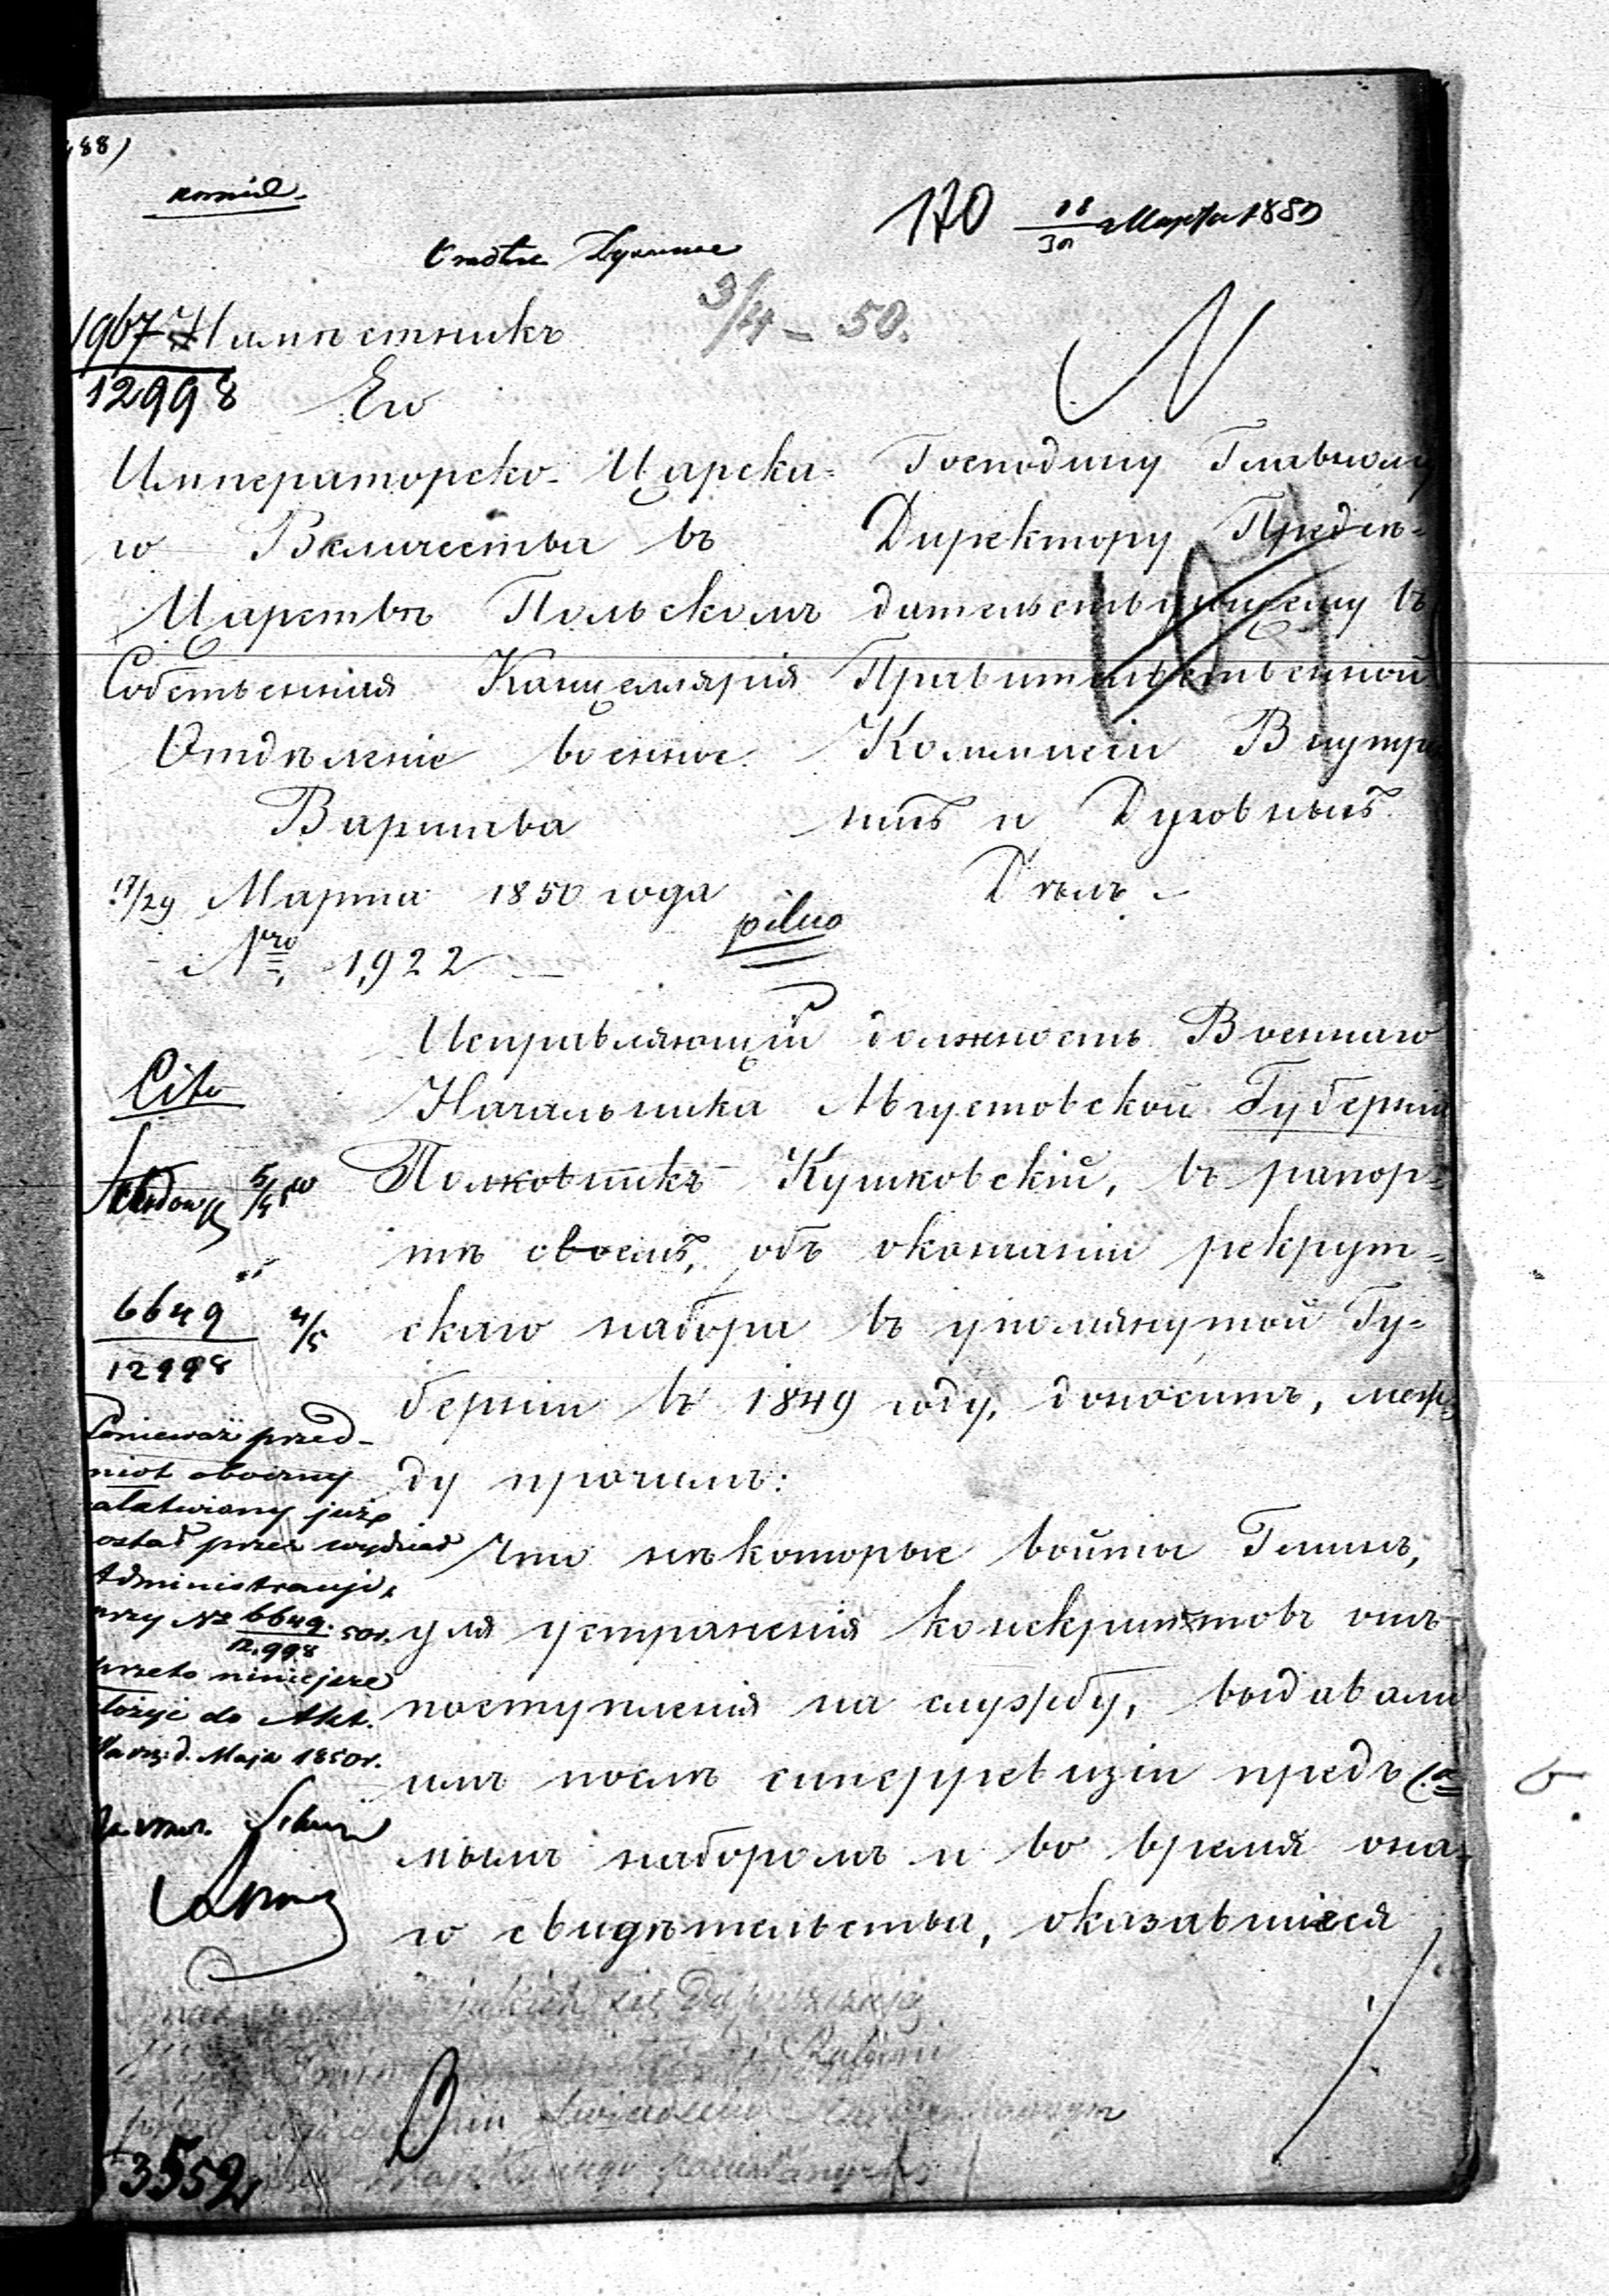 170 18/30 Марта 1850
3/4 - 50.
1967
12998
Намѣстникъ
Его
Императорско-Царска=
го Величества въ
Царствѣ Польскомъ
Собственная Канцелярія
Отдѣленіе военное.
Варшава
17/29 Марта 1850 года
Nro 1,922
Господину Главному
Директору Предсѣ=
дательствующему въ
Правительственной
Коммисіи Внутре
нихъ и Духовныхъ
Дѣлъ.
pilno
Исправляющій должность Военнаго
Начальника Августовской Губерніи
Полковникъ Кушковскій, въ рапор=
тѣ своемъ, объ окончаніи рекрут=
скаго набора въ упомянутой Гу=
берніи въ 1849 году, доноситъ, меж=
ду прочимъ:
Что нѣкоторые войты Гминъ,
для устраненія конскриптовъ отъ
поступленія на службу, выдавали
имъ послѣ суперревизіи предъ са=
мымъ наборомъ и во время она=
го свидѣтельства, оказавшіеся
Cito
6649
12998
4/5
Ponieważ przed-
miot obecny
załatwiony już
został przez wydział
Administracyi,
przy No 6649/12.998 50r.
przeto niniejsze
złożyć do Akt.
d. Maja 1850r.
13552